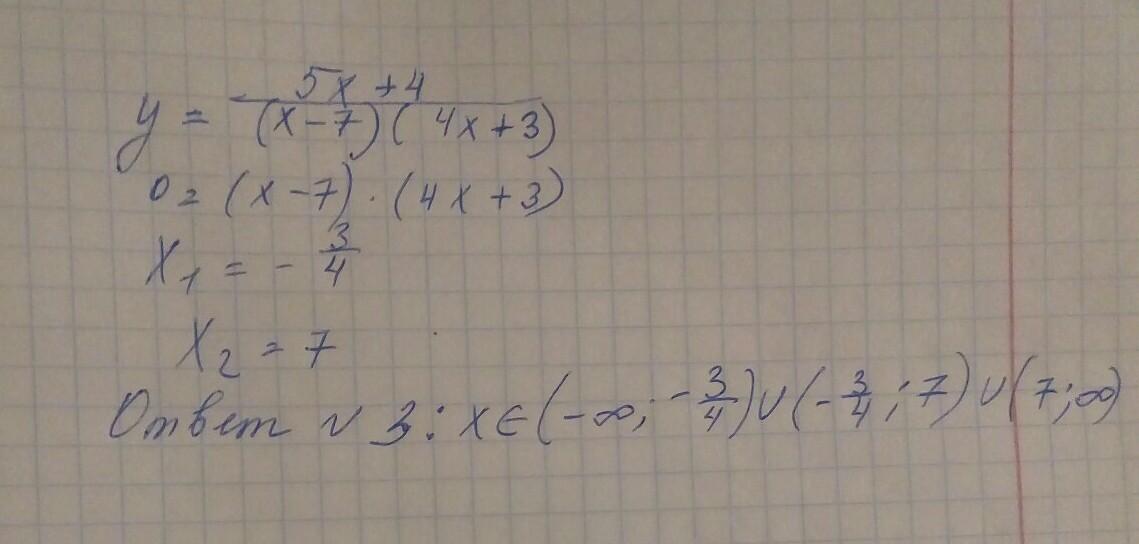 y = 5x + 4 / (x - 7)(4x + 3)
0 = (x - 7) · (4x + 3)
x₁ = - 3/4
x₂ = 7
Ответ № 3: x ∈ (-∞; -3/4) ∪ (-3/4; 7) ∪ (7; ∞)